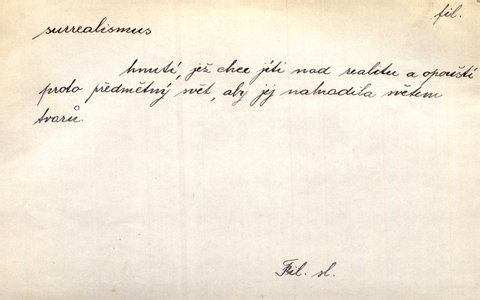 fil.
surrealismus
hnutí, jež chce jíti nad realitu a opouští
proto předmětný svět, aby jej nahradila světem
tvarů.
Fil. sl.